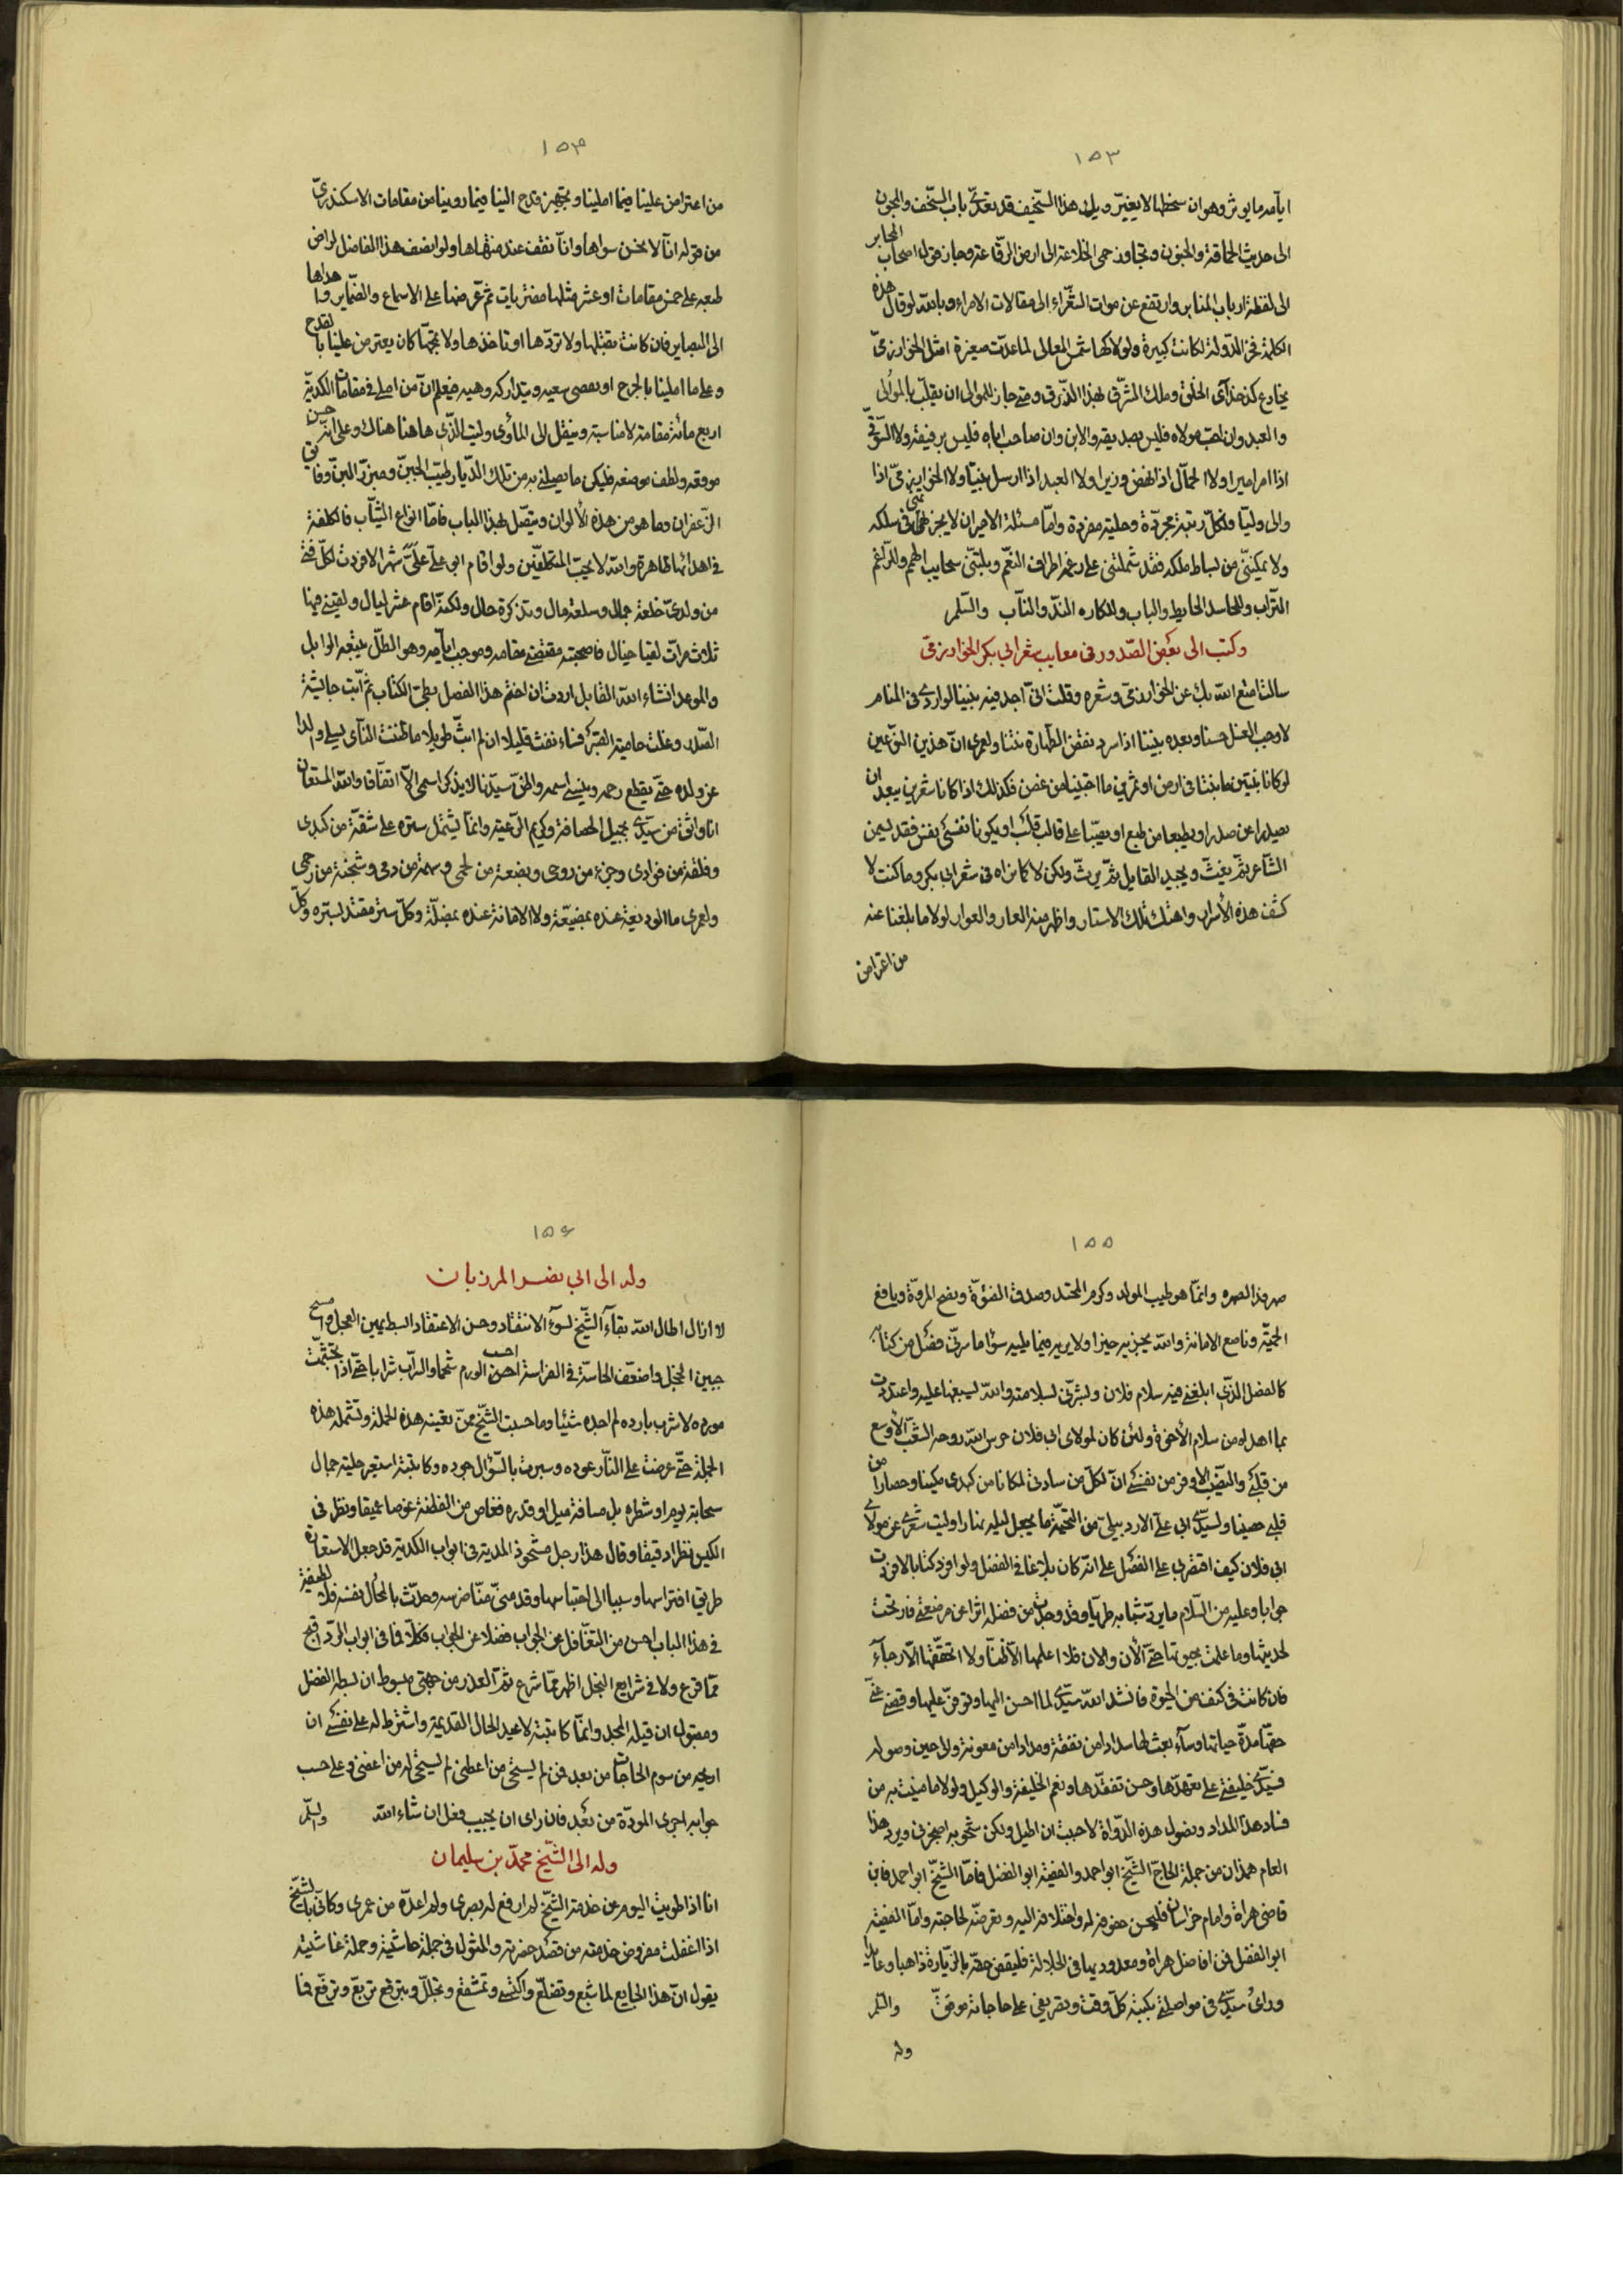 ١٥٣
ايامه ما يوثر وهو ان سخطها لا يغير ويلك هذا السخيف قد تعدى باب السخف والمجون
الى حديث الحماقة والجنون وتجاوز حمى الخلاعة الى ارض الرقاعة وجاز قول اصحاب المحابر
الى لفظة ارباب المنابر وارتفع عن موات الشعراء الى مقالات الامراء وبالله لو قال هذه
الكلمة فخر الدولة لكانت كبيرة ولو لاكها شمس المعالى لما عدت صغيرة امثل الخوارزمى
يخادع عن الخلق وملك المشرق بهذا الذرق ومتى جاز للموالى ان يقلب بالموالى
والعبد وان احب مولاه فليس بصديقه والابن وان صاحب اباه فليس برفيقه ولا السوقى
اذا امر اميرا ولا الحمال اذا نهض وزيرا ولا العبد اذا ارسل نبيا ولا الخوارزمى اذا
والى وليا ولكل رتبة مجردة وحلية مفردة واما مسئلة الامير ان لا يخرطنى فى سلكه
ولا يمكننى من بساط ملكه فقد شملتنى على رغمه اطراف النعم وبلتنى سحايب الهمم وللراغم
التراب وللحاسد الحايط والباب وللكاره المنذ والناب والسلم
وكتب الى بعض الصدور فى معايب شعر ابى بكر الخوارزمى
سالت امتع الله بك عن الخوارزمى وشعره وقلت انى اجد فيه بيتا لوارى فى المنام
لاوجب الغسل حسنا وبعده بيتا اذا سرد نقض الطهارة نتنا ولعمرى ان هذين النوعين
لو كانا بنيتين ما نبتا فى ارض او ثمرتين ما اجتنيا من غصن فكذلك اذا كانا شعرين يبعد ان
يصدرا عن صدر او يطبعا من طبع او يصبا على قالب قلب او يكونا نفسى نفس فقد يسمن
الشاعر ثم يغث ويجيد القايل ثم يرث ولكن لا كما نراه فى شعر ابى بكر وما كنت لا
كشف هذه الاسرار واهتك تلك الاستار واظهر منه العار والعوار لولا ما بلغنا عنه
من اعتراض
١٥٤
من اعتراض علينا فيما املينا وتجهيز قدح الينا فيما روينا من مقامات الاسكندرى
من قوله انا لا نحسن سواها وانا نقف عند منتهاها ولو انصف هذا الفاضل لراض
طبعه على خمس مقامات او عشر مثلها مفتريات ثم عرضها على الاسماع والضماير واهداها
الى البصاير فان كانت تقبلها ولا تردها او تاخذها ولا تمجها كان يعترض علينا بالقدح
وعلى ما املينا بالجرح او يقصر سعيه ويتداركه وهيه فيعلم ان من املى فى مقامات الكدية
اربع مائة مقامة لا مناسبة وينقل الى المأوى وليت الذى هاهنا هناك وعلى اثر حسن
موقعه ولطف موضعه فليكن ما تصلنى به من تلك الديار طيب الجبن ومبزر اللبن وفايق
الزعفران وما هو من هذه الالوان ويتصل بهذا الباب فاما انواع الثياب فالكلفة
فى اهدائها ظاهرة والله لا يحب المتكلفين ولو اقام ابو على على شهرا لافردت لكل فتى
من ولدى خلعة جمال وسلعة مال وتذكرة حال ولكنه اقام عشر ليال ولقيته فيها
ثلاث مرات لقيا خيال فاصحبته مقتضى مقامه وموجب ايامه وهو الطل يتبعه الوابل
والموعد انشاء الله القابل اردت ان اختم هذا الفصل بطى الكتاب ثم ابت جايشة
الصدر وغلت حامية القدر فساء نفث قليلا ان لم ابث طويلا ما ظننت الناى يسلى والدا
عن ولده حتى يقطع رحمه وينسى اسمه واظن سيدنا لا يذكر اسمى الا اتفاقا والله المستعان
انا واثق من سيدى بجميل الحصافة وكريم الرعية وانما يشتمل ستره على شقة من كبدى
وفلقة من فؤادى وجزء من روحى وبضعة من لحمى وسهمة من دمى وشجنة من رحمى
ولعمرى ما الوديعة عنده بمضيعة ولا الامانة عنده بمضلة وكل سر مفتد بستره وكل
١٥٥
صهر فداء لصهره وانما هو طيب المولد وكرم المحتد وصدق الفتوة ونصح المروة ويافع
الحمية وناصع الامانة والله يجزيه خيرا ولا يريه فيما يليه سؤا ما سرنى فصل من كتابه
كالفصل الذى ابلغنى فيه سلام فلان وبشرنى بسلامته والله يسبغها عليه واعتددت
بما اهداه من سلام الاخوة ولئن كان لمولاى ابى فلان حرس الله روحه الشعب الاوسع
من قلبى والنصيب الاوفر من نفسى ان لكل من سادتى لمكانا من كبدى مكينا وحصارا من
قلبى حصينا ولسيدى ابى على الاردبيلى من التحية ما يجعل ليله نهارا وليت شعرى عن مولاى
ابى فلان كيف اقتصر بى على الفصل على انه كان بلاغا فى الفضل ولو افرد كتابا لافردت
جوابا وعليه من السلام ما يرد شبابه طريا وقد وجدت من فضله اثرا عن مرضعتى فارتحت
لحديثها وما علمت بحيوتها حتى الان والان فلا اعلمها الا ظنا ولا اتحققها الا رجاء
فان كانت فى كنف من الحيوة فانشد الله سيدى لما احسن اليها وتوفر عليها وقضى عنى
حقها مدة حياتها وسآء بعث لها سدادا من نفقة ومدادا من معونة والى حين وصوله
فسيدى خليفتى على تعهدها وحسن تفقدها ونعم الخليفة والوكيل ولولا ما منيت به من
فساد هذا المداد ونضول هذه الدواة لاحببت ان اطيل ولكن سموجته اضجرنى ويرد هذا
العام همذان من جملة الحاج الشيخ ابو احمد والفقيه ابو الفضل فاما الشيخ ابو احمد فابن
قاضى هراة وامام خراسان فليحسن حفوفه له واختلافه اليه وتعرضه لحاجته واما الفقيه
ابو الفضل فمن افاضل هراة ومعدوديها فى الجلالة فليقض حقه بالزيارة ذاهبا وعايدا
وراى سيدى فى مواصلتى بكتبه كل وقت وتصريفى على حاجاته موفق والسلم
وله
١٥٦
وله الى ابى نصر المرزبان
لا ازال اطال الله بقاء الشيخ لسوء الانتقاد وحسن الاعتقاد ابسط يمين العجل وامسح
جبين الخجل واضعف الحاسة فى الفراسة احسب الورم شحما والسراب شرابا حتى اذا تجشمت
مورده لاشرب بارده لم اجده شيئا وما حسبت الشيخ ممن تعنيه هذه الجملة وتشمله هذه
الجملة حتى عرضت على النار عوده وسبرت بالسؤال جوده وكاتبته استعير حلية جمال
سحابة يوم او شطره بل مسافة ميل او قدره فغاص من الفطنة غوصا عميقا ونظر فى
الكيس نظرا دقيقا وقال هذا رجل مشحوذ المدية فى ابواب الكدية قد جعل الاستعارة
طريق افتراسها وسببا الى احتباسها وقد منى ضرسه وحدث بالمحال نفسه فلا لطيفة
فى هذا الباب احسن من التغافل عن الجواب فضلا عن الجواب فكلا فما فى ابواب الرد اقبح
مما قرع ولا فى شرايع البخل اظهر مما شرع ثم العذر من جهتى مبسوط ان بسطه الفضل
ومقبول ان قبله المجد وانما كاتبته لاعيد الحال القديمة واشترط له على نفسى ان
اريحه من سوم الحاجات من بعد فمن لم يستحى من اعطنى لم يستحى له من اعفنى وعلى حسب
جوابه اجرى المودة من بعد فان راى ان يجيب فعل ان شاء الله والسلم
وله الى الشيخ محمد بن سليمان
انا اذا طويت اليوم عن خدمة الشيخ لم ارفع له بصرى ولم اعده من عمرى وكانى بالشيخ
اذا اغفلت مفروض خدمته من قصد حضرته والمثول فى جملة حاشيته وحملة غاشيته
يقول ان هذا الجايع لما شبع وتضلع واكتسى وتمشفع وتجلل وتبرقع تربع وترفع فما